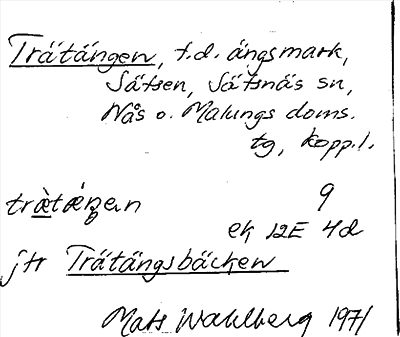 Trätängen, t.d. ängsmark,
Sätsen, Sätsnäs sn,
Nås o. Malungs doms.
tg, Kopp.l.
træ̀tǽŋan 9
ek 12E 4d
jfr Trätängsbäcken
Mats Wahlberg 1971